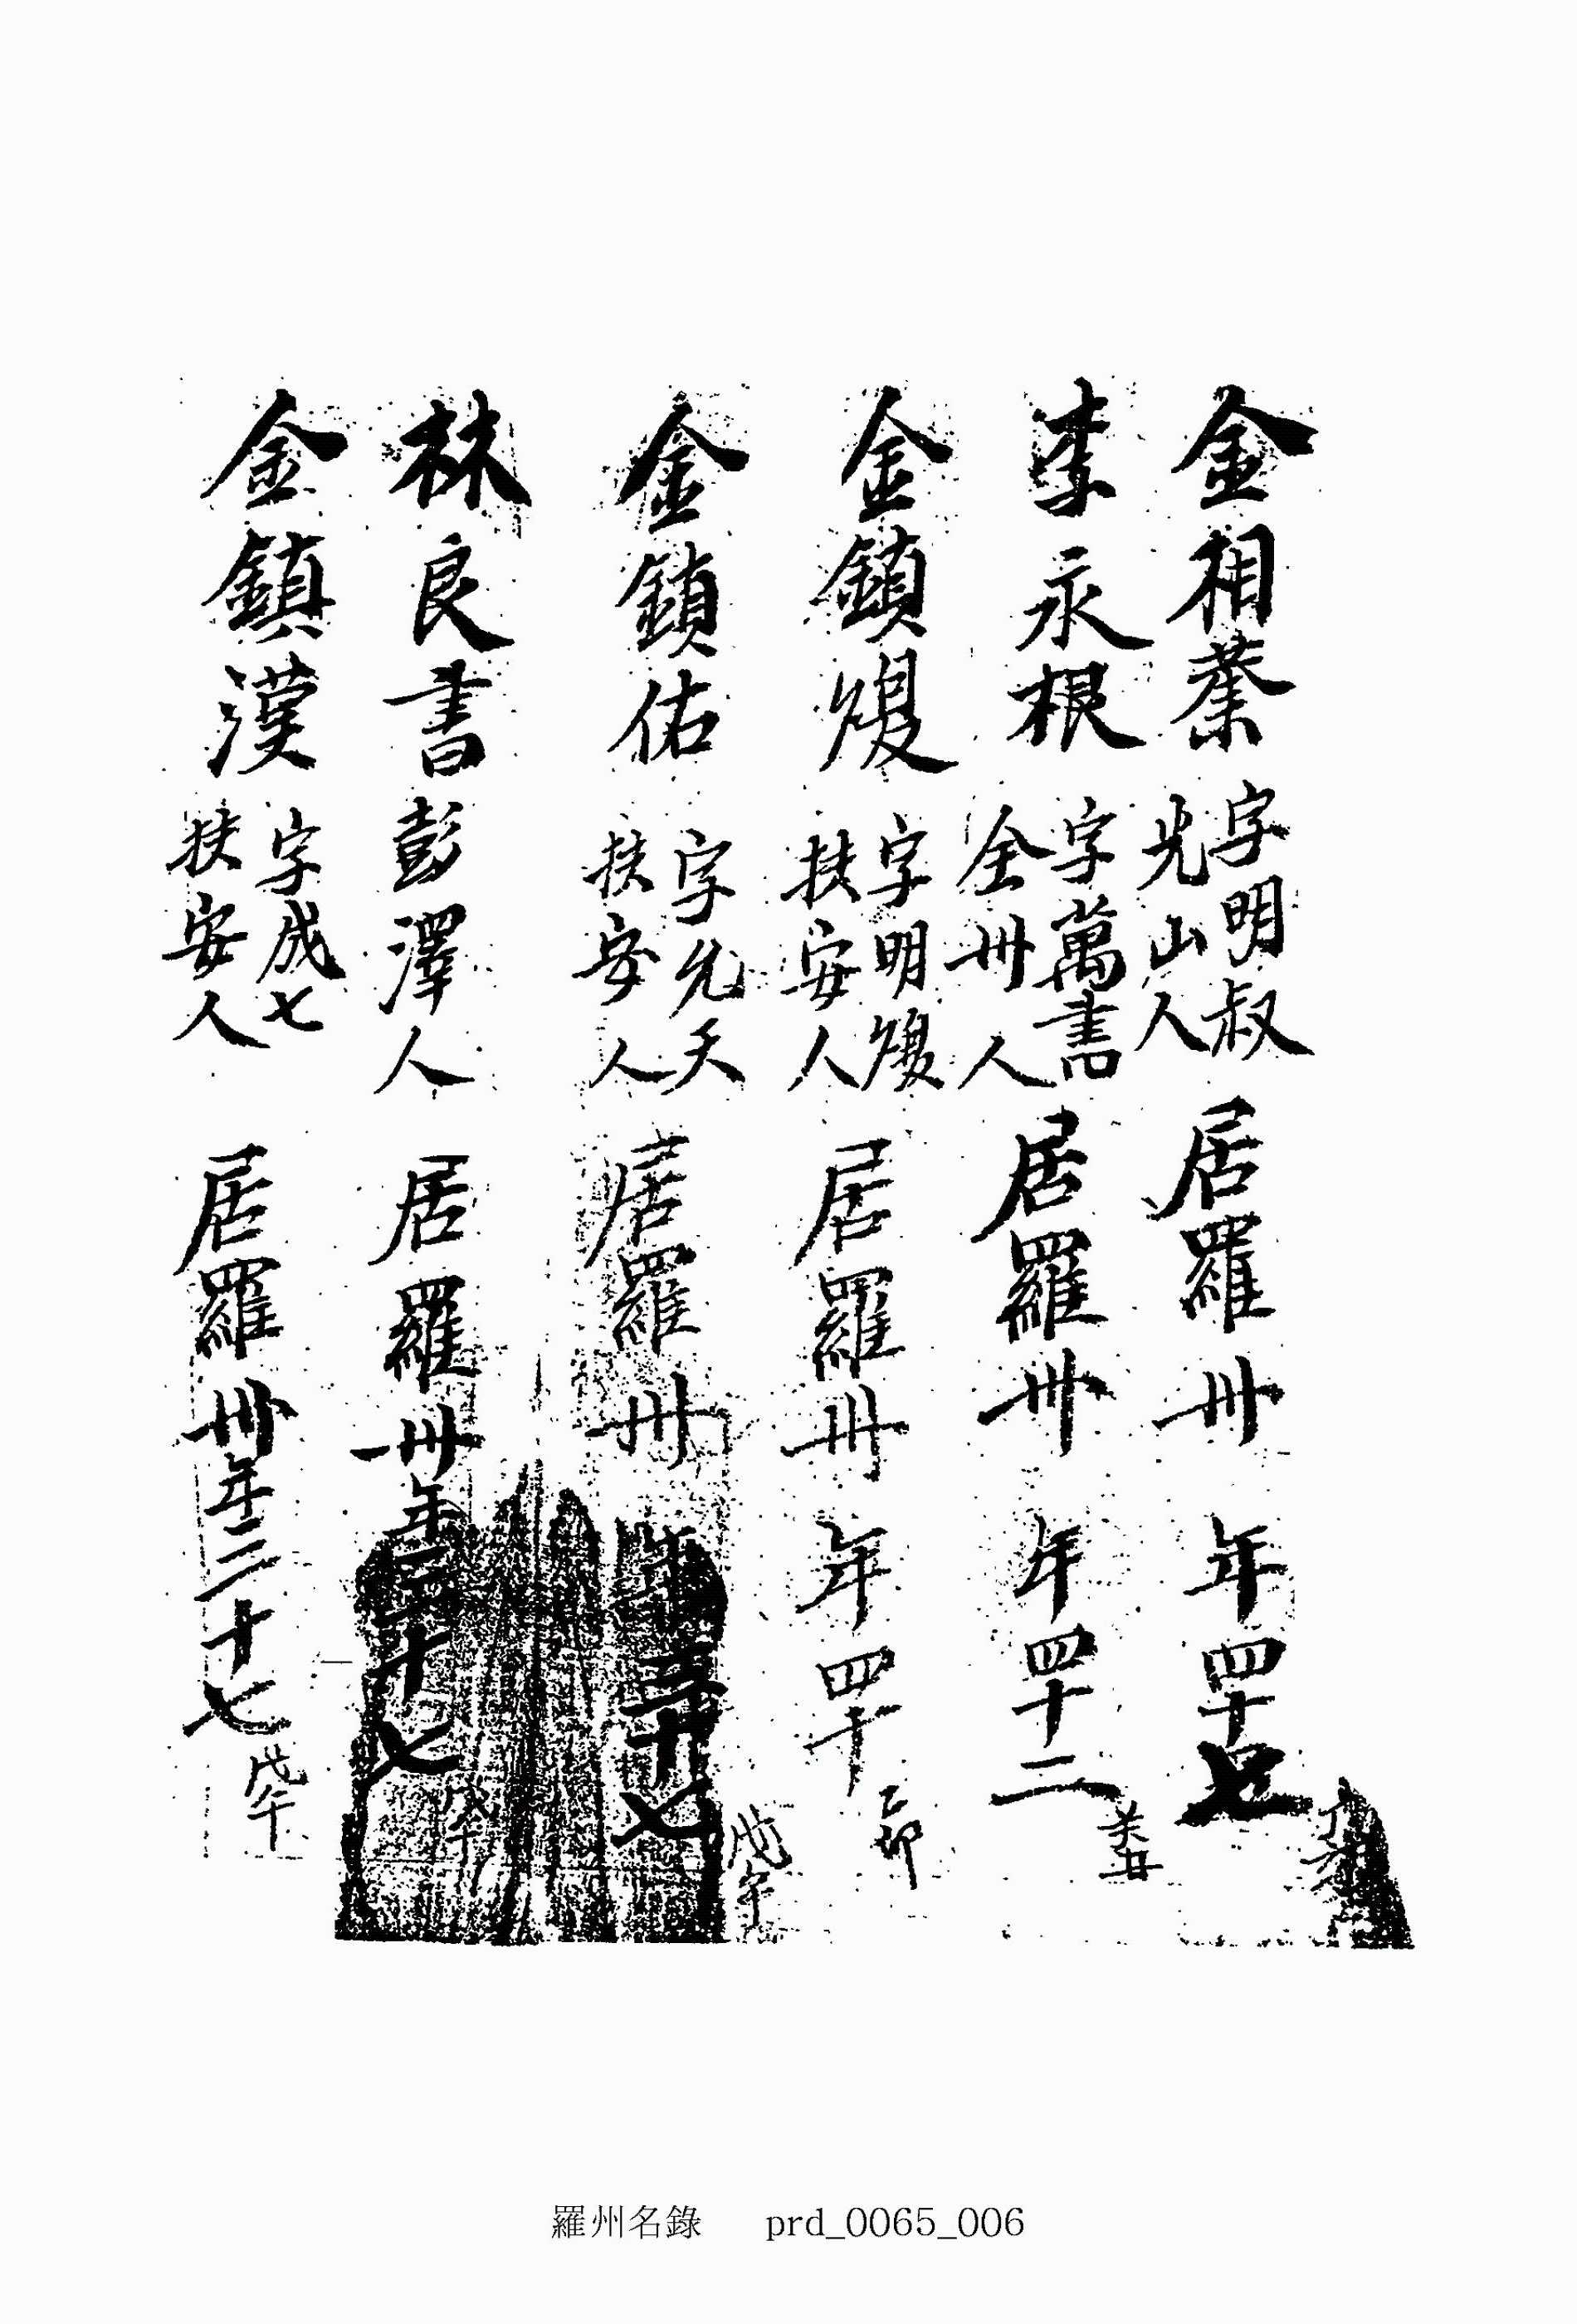 金相蓁 字明叔 光山人 居羅州 年四十七
李永根 字萬書 全州人 居羅州 年四十二
金鎮煆 字明煆 扶安人 居羅州 年四十 乙卯
金鎮佑 字允天 扶安人 居羅州 年五十七 戊午
林良書 彭澤人 居羅州 年三十七 戊午
金鎮漢 字成七 扶安人 居羅州 年三十七 戊午
羅州名錄 prd_0065_006